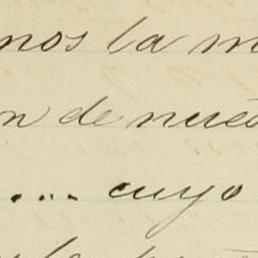 nos la m
n de nues
.... cuyo